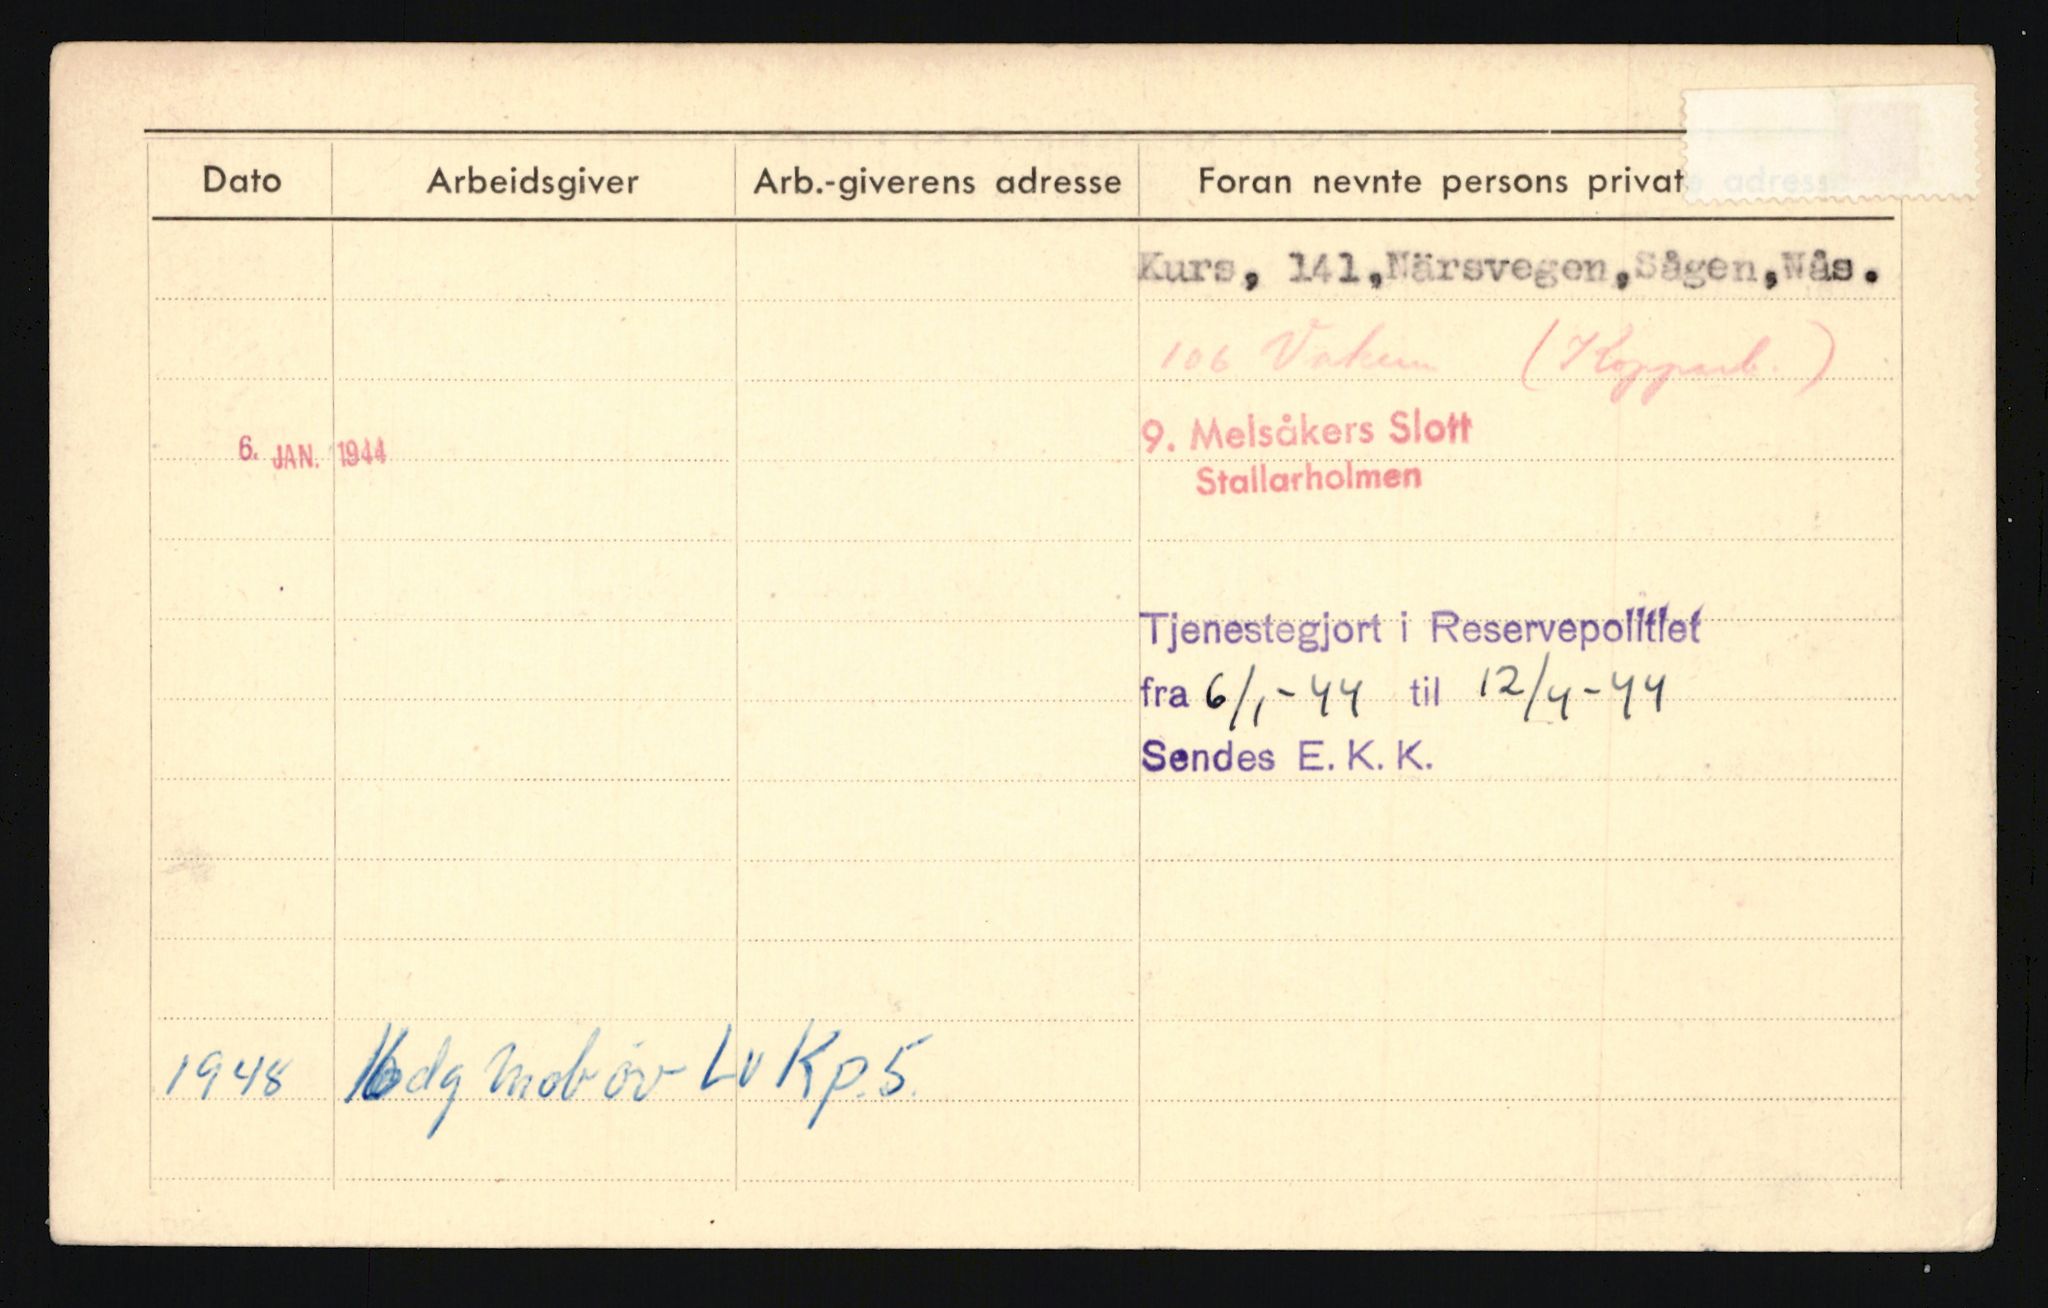 Dato Arbeidsgiver Arb.-giverens adresse Foran nevnte persons private adresse
Kurs, 141,Närsvegen,Sågen,Nås.
106 (Kopparb.)
6. JAN. 1944 9. Melsåkers Slott
Stallarholmen
Tjenestegjort i Reservepolitiet
fra 6/1-44 til 12/4-44
Sendes E. K. K.
1948 16 dg mob öv Lv Kp. 5.